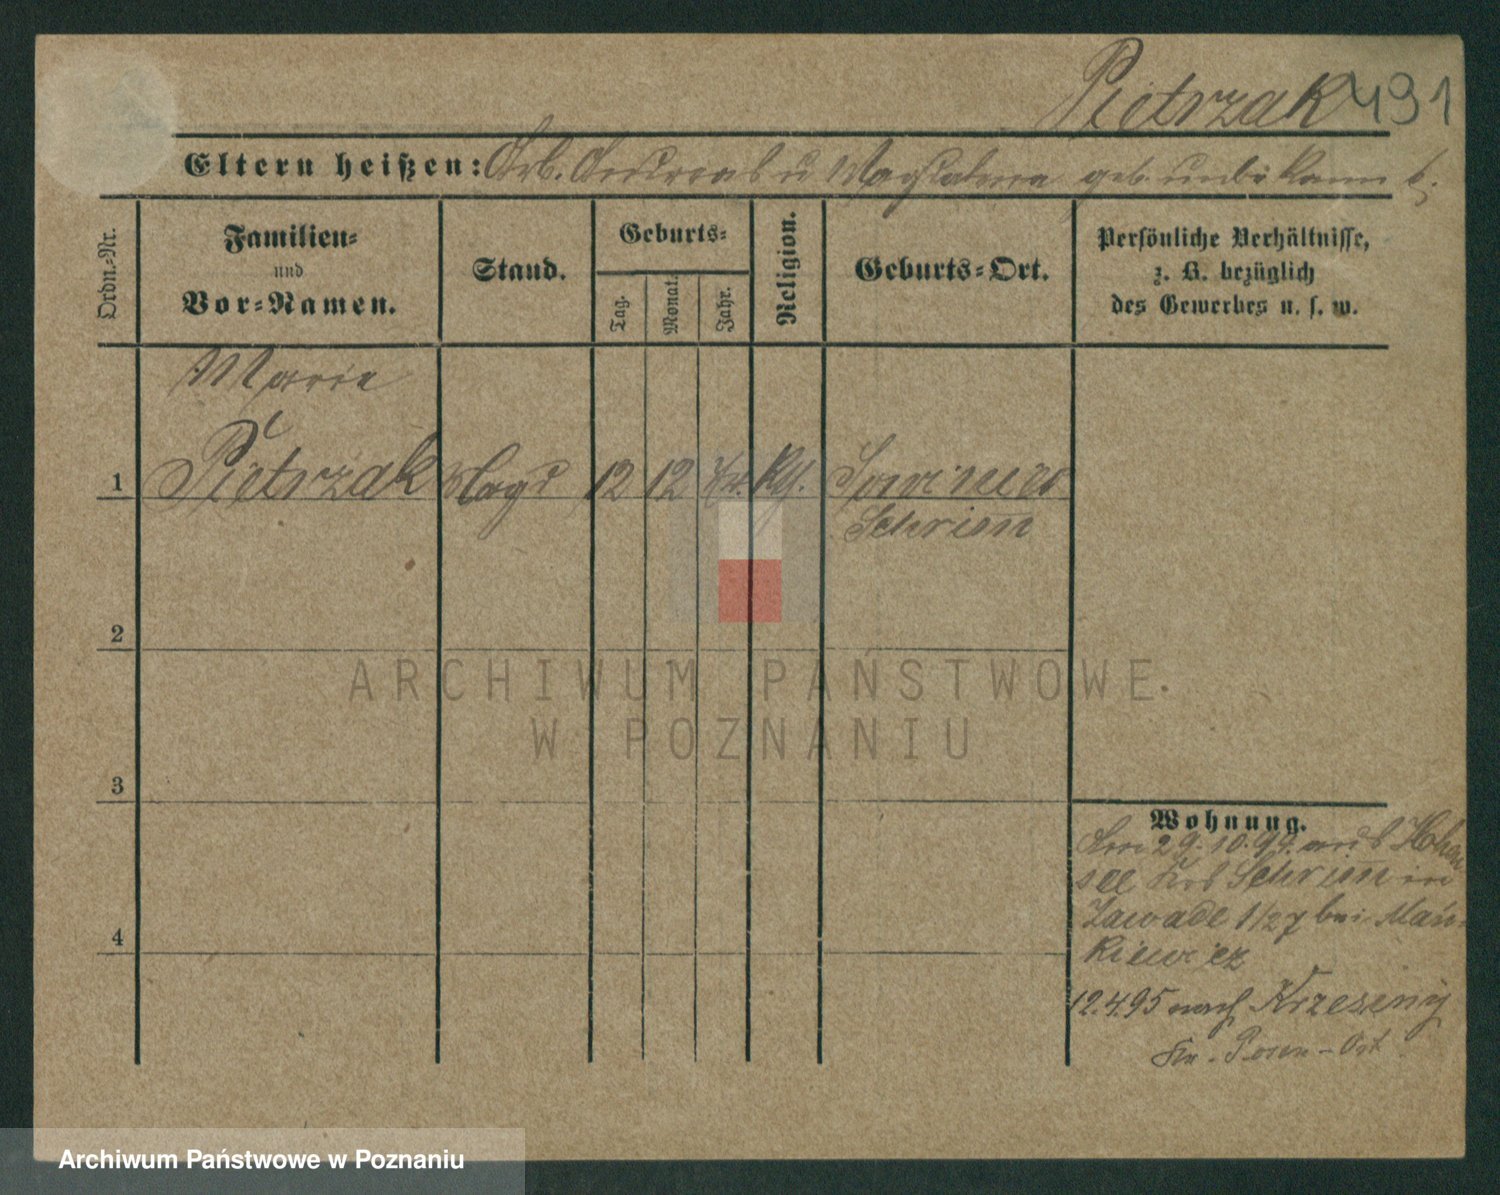 Pietrzak 491
Eltern heißen: Arb. Andreas u Magdalena geb. unbekannt.
Ordn.-Nr.
Familien-
und
Vor-Namen.
Stand.
Geburts-
Tag.
Monat.
Jahr.
Religion.
Geburts-Ort.
Persönliche Verhältnisse,
z. B. bezüglich
des Gewerbes u. s. w.
Marie
1 Pietrzak Magd 12 12
Schrim̄
2
ARCHIWUM PAŃSTWOWE
W POZNANIU
3
Wohnung.
Am 29.10.94. aus Hohen
see Krs Schrim̄ in
4
Zawade 1/2 7 bei Mań-
kiewicz
12.4.95 nach Krzesiny
Kr. Posen-Ost
Archiwum Państwowe w Poznaniu